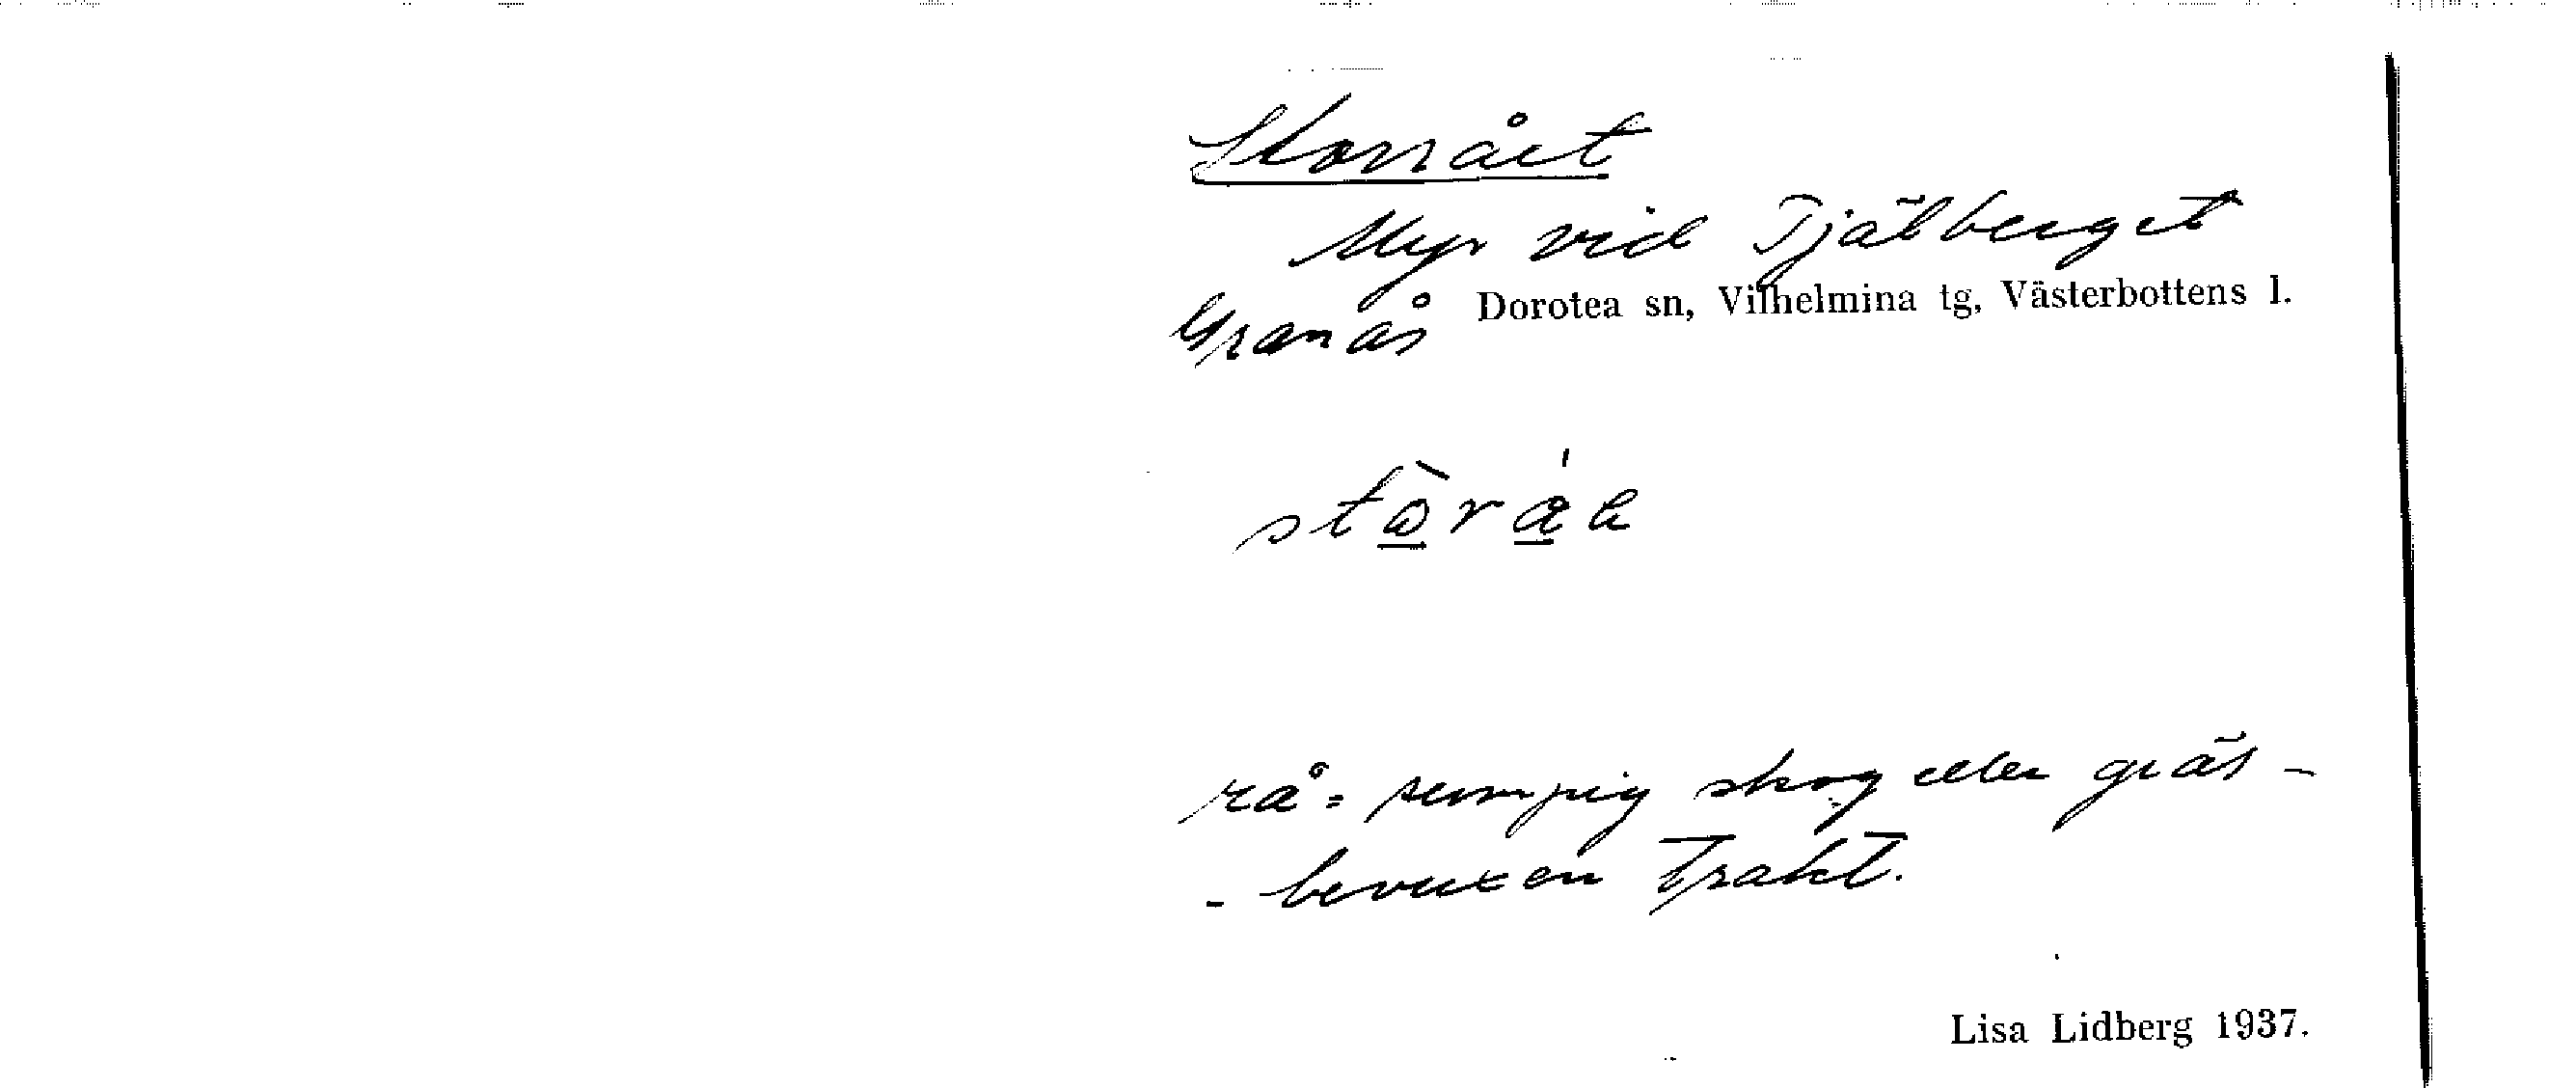 Storrået
Myr vid Tjälberget
Granås Dorotea sn, Vilhelmina tg, Västerbottens l.
rå = sumpig skog eller gräs-
- bevuxen trakt.
Lisa Lidberg 1937.